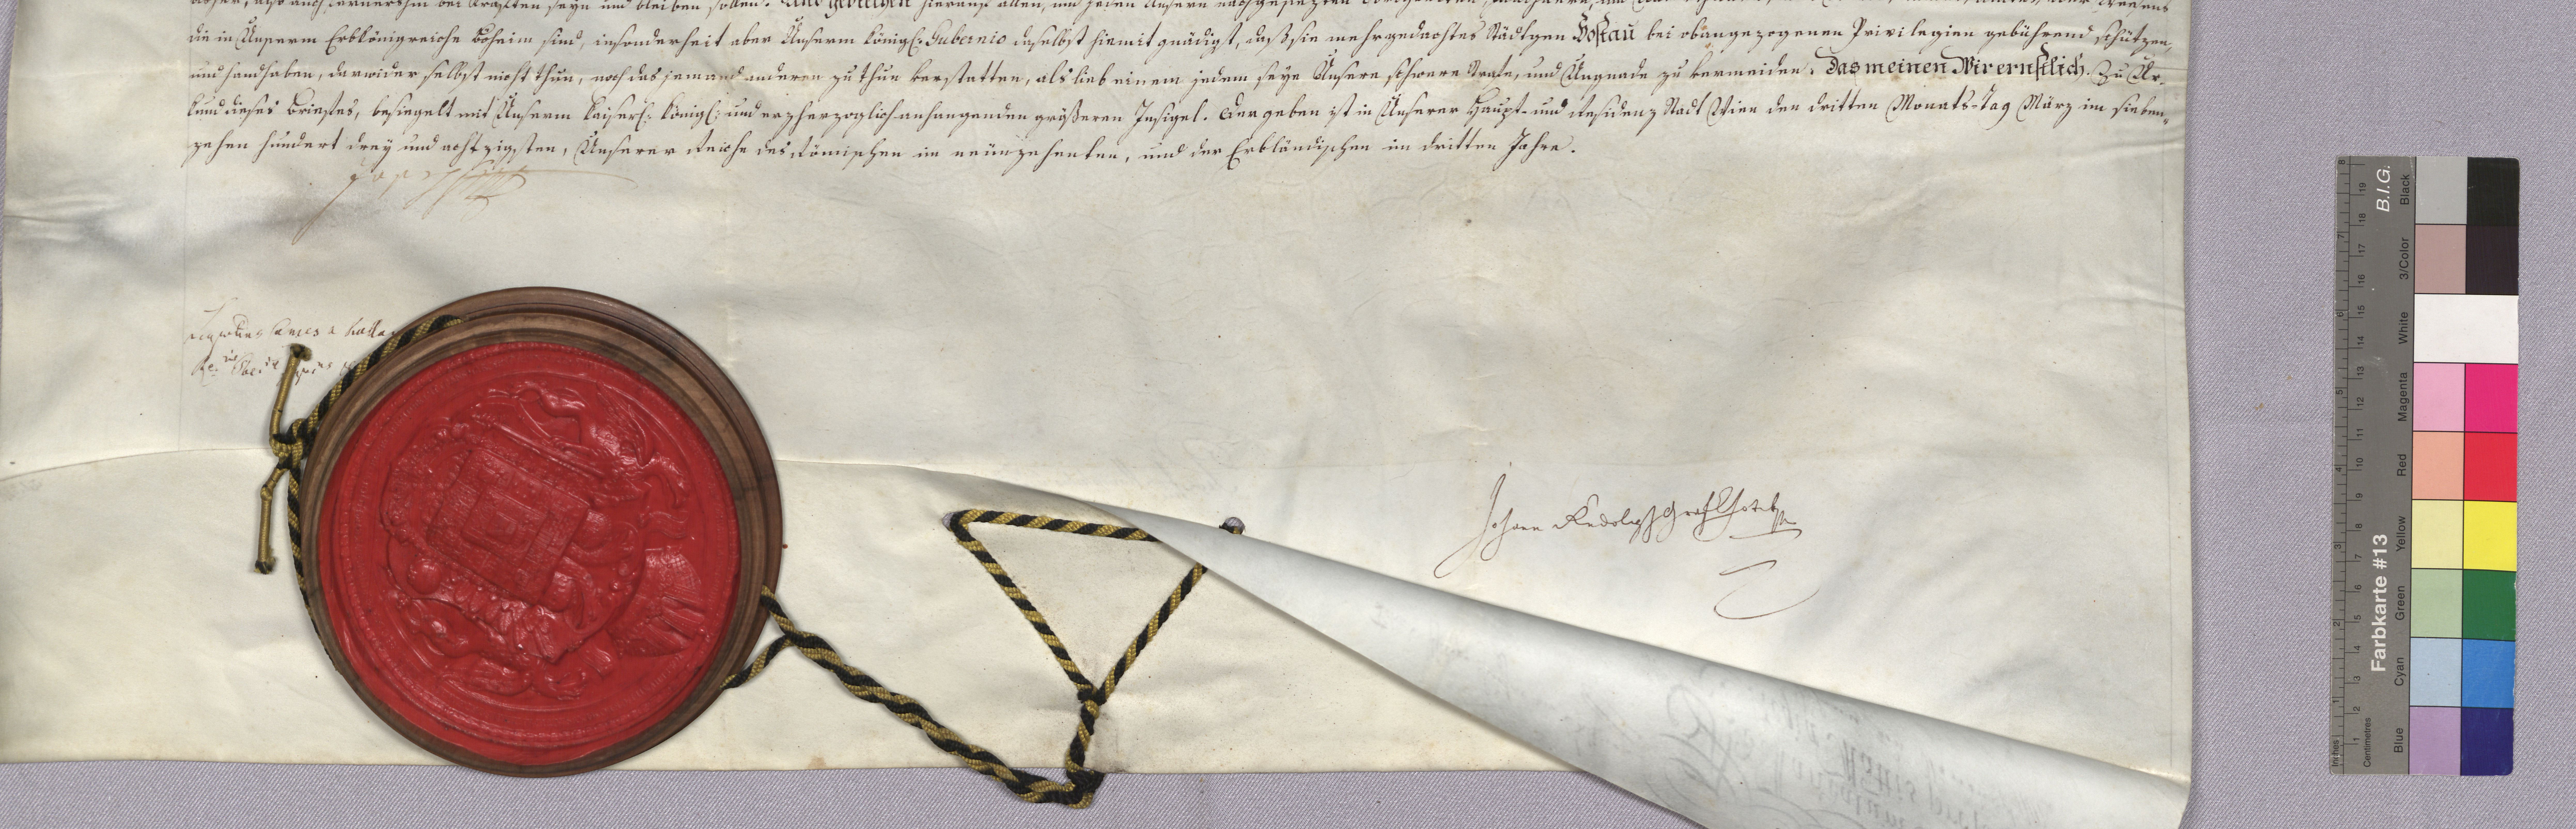 seyn und bleiben sollen. Und gebiethen hierauf allen, und jeden Unsern nachgesezten
die in Unserm Erbkönigreiche Böheim sind, insonderheit aber Unserm königl: Gubernio daselbst hiemit gnädigst, daß sie mehrgedachtes Städtgen Hostau bei obangezogenen Privilegien gebührend schützen,
und handhaben, darwider selbst nicht thun, noch das jemand anderen zu thun verstatten, als lieb einem jedem seye Unsere schwere Strafe, und Ungnade zu vermeiden. Das meinen Wir ernstlich. Zu Ur-
kund dieses Briefes, besiegelt mit Unserm kaiserl: königl: und erzherzoglich-anhangenden größeren Insigel. Der geben ist in Unserer Haupt- und Residenz Stadt Wien den dritten Monats-Tag März im sieben-
zehen hundert drey und achtzigsten, Unserer Reiche des Römischen im neünzehenten, und der Erbländischen im dritten Jahre.
Comes a
Johann Rudolph Graf Chotek
Inches
Centimetres
1 2 3 4 5 6 7 8
1 2 3 4 5 6 7 8 9 10 11 12 13 14 15 16 17 18 19
Farbkarte #13
B.I.G.
Blue
Cyan
Green
Yellow
Red
Magenta
White
3/Color
Black